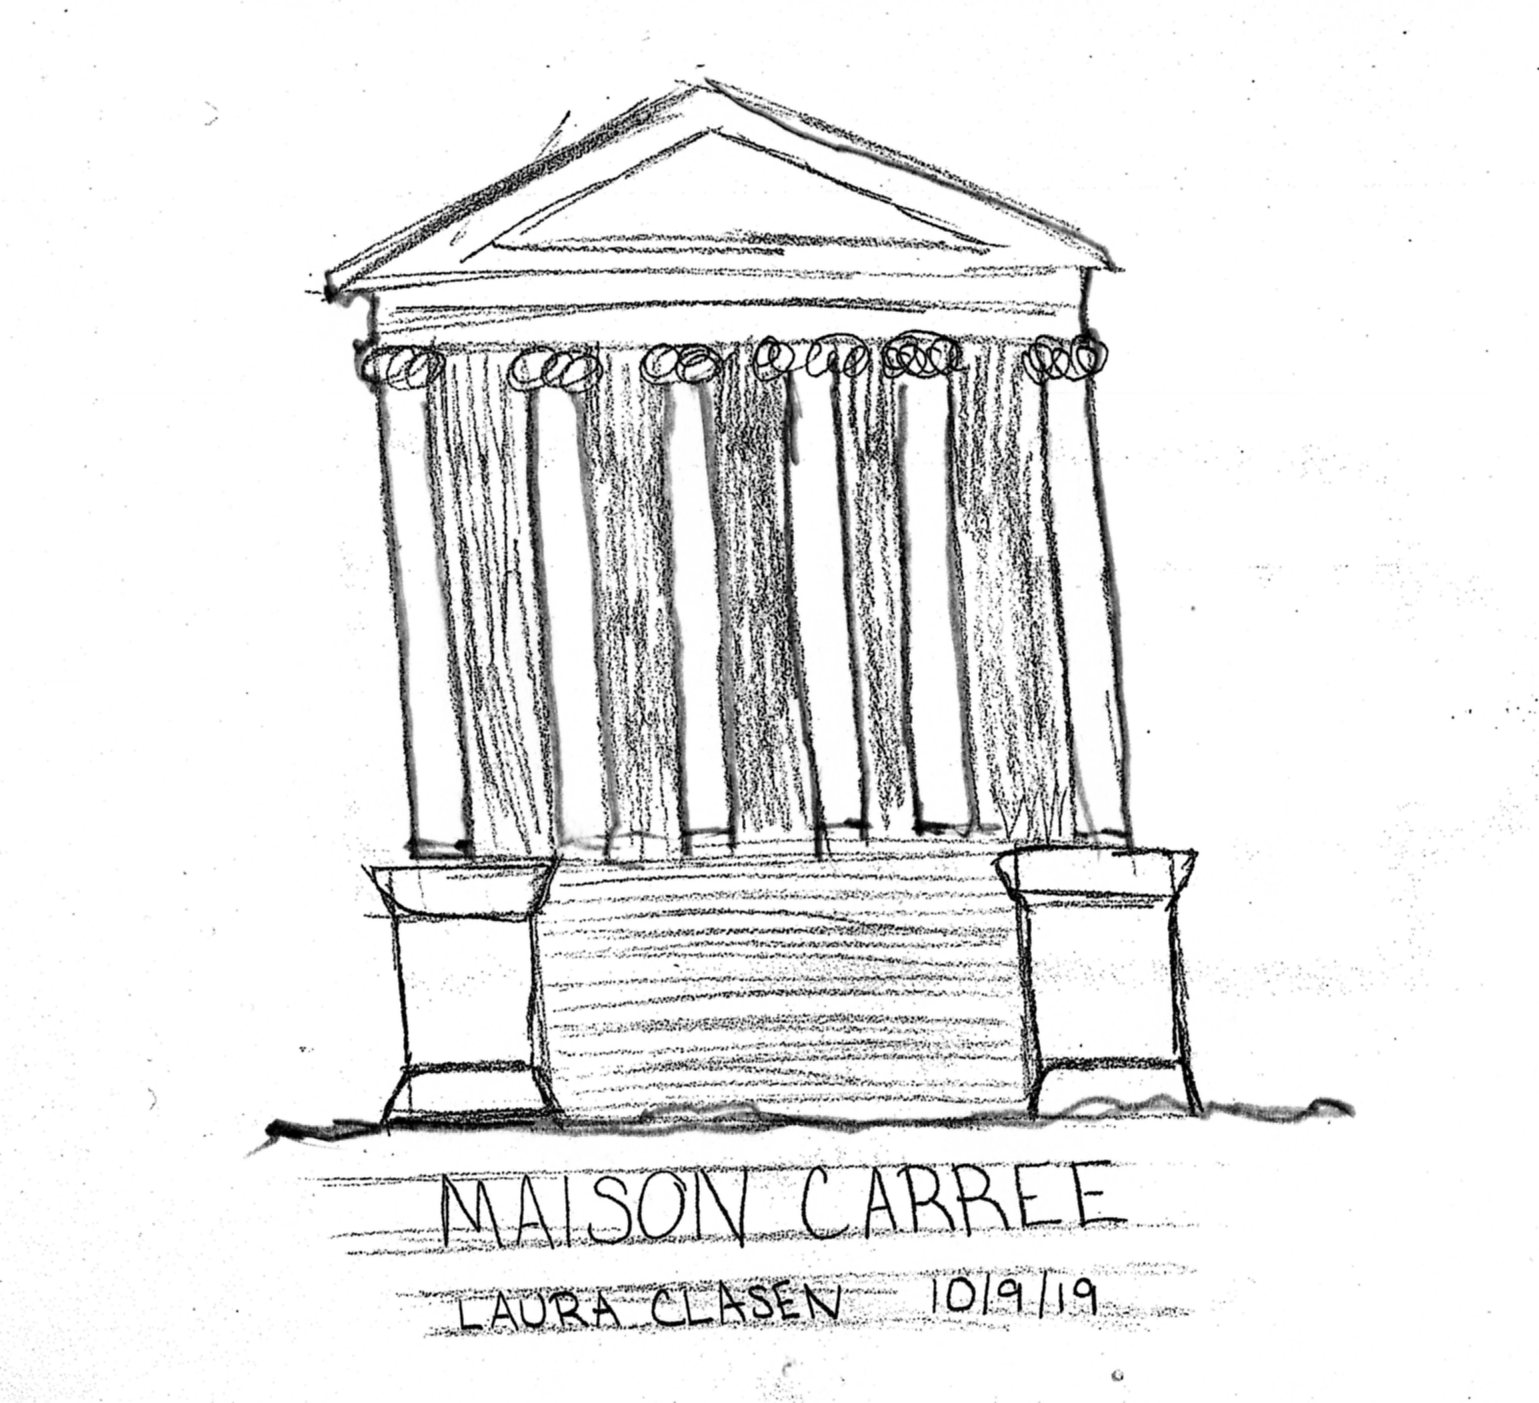 MAISON CARREE
LAURA CLASEN 10/9/19